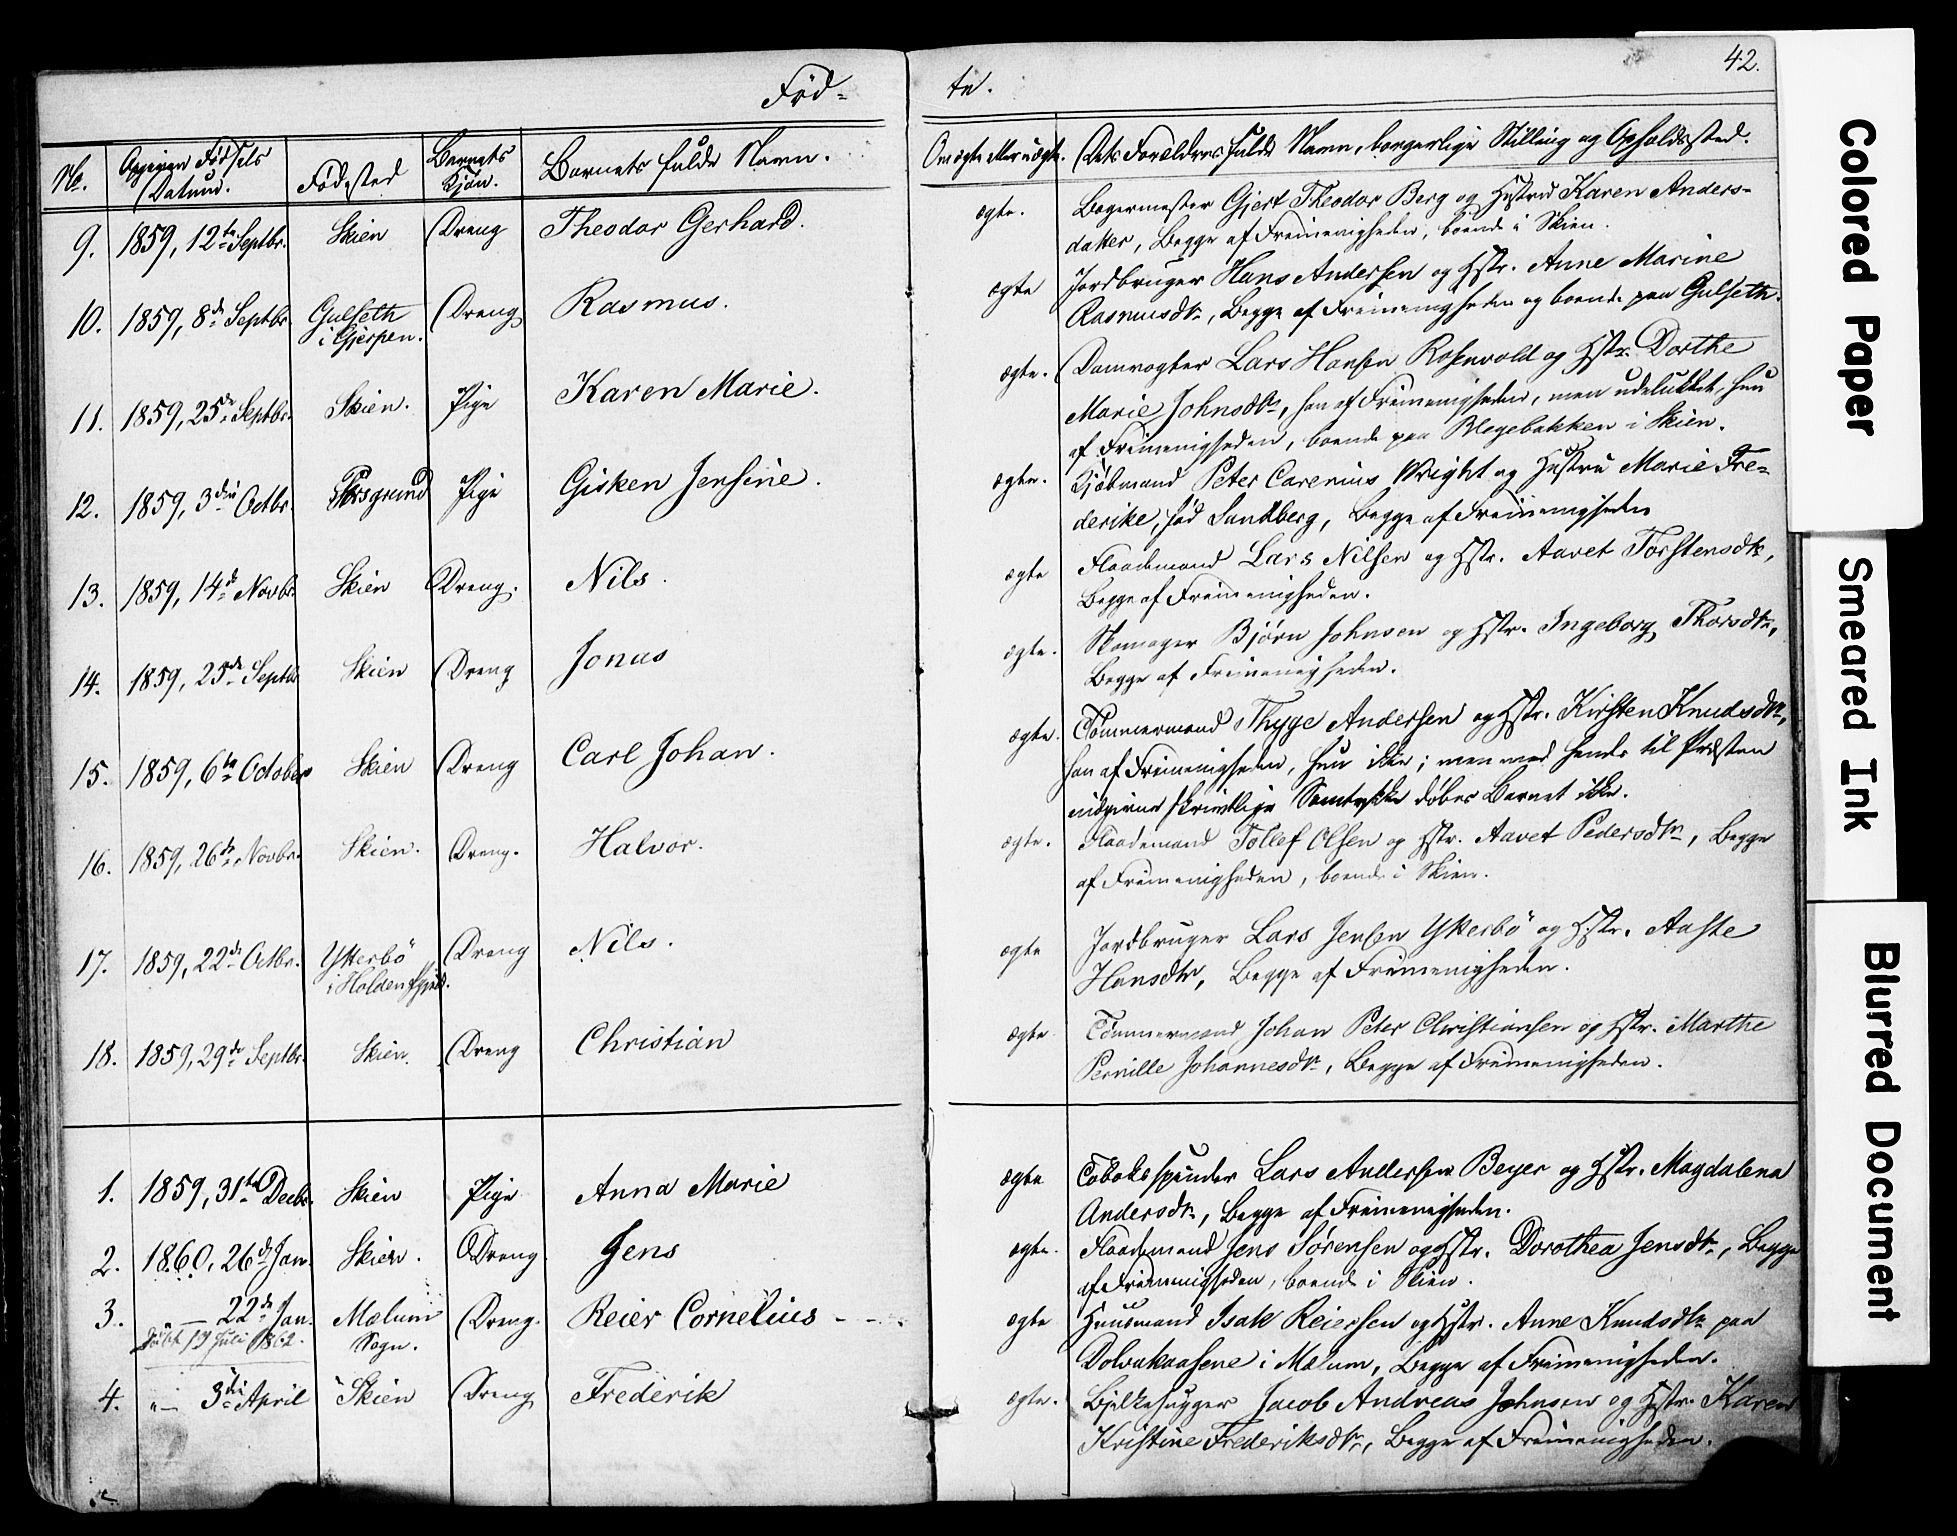 42.
Fød-
te.
No. Opgiven Fødsels Datum. Fødested Barnets Kjøn. Barnets fulde Navn. Om ægte eller uægte. Dets Forældres fulde Navn, borgerlige Stilling og Opholdssted.
9. 1859, 12te Septbr. Skien Dreng Theodor Gerhard. ægte. Bagermester Gjert Theodor Berg og Hustru Karen Anders-
datter, Begge af Frimenigheden, boende i Skien.
10. 1859, 8de Septbr. Gulseth Dreng Rasmus. ægte Jordbruger Hans Andersen og Hstr. Anne Marine
i Gjerpen. Rasmusdtr, Begge af Frimenigheden og boende paa Gulseth.
11. 1859, 25de Septbr. Skien. Pige Karen Marie. ægte. Damvogter Lars Hansen Rosenvold og Hstr. Dorthe
Marie Johnsdtr, han af Frimenigheden, men udelukket, hun
af Frimenigheden, boende paa Blegebakken i Skien.
12. 1859, 3die Octbr. Porsgrund Pige Gisken Jensine. ægte. Kjøbmand Peter Carenius Wright og Hustru Marie Fre-
derike, fød Sandberg, Begge af Frimenigheden
13. 1859, 14de Novbr. Skien Dreng. Nils. ægte Flaademand Lars Nilsen og Hstr. Aavet Torstensdtr,
Begge af Frimenigheden.
14. 1859, 25de Septbr Skien Dreng Jonas ægte. Skomager Bjørn Johnsen og Hstr. Ingeborg Thorsdtr,
Begge af Frimenigheden.
15. 1859, 6te October Skien Dreng Carl Johan. ægte. Tømmermand Thyge Andersen og Hstr. Kirsten Knudsdtr,
han af Frimenigheden, hun ikke; men med hendes til Præsten
indgivne skrivtlige Samtykke døbes Barnet ikke.
16. 1859, 26de Novbr. Skien. Dreng. Halvor. ægte. Flaademand Tollef Olsen og Hstr. Aavet Pedersdtr, Begge
af Frimenigheden, boende i Skien.
17. 1859, 22de Octbr. Ytterbö Dreng Nils. ægte Jordbruger Lars Jensen Ytterbö og Hstr. Aaste
i Holden Hansdtr, Begge af Frimenigheden.
18. 1859, 29de Septbr. Skien. Dreng Christian ægte Tømmermand Johan Peter Christiansen og Hstr. Marthe
Pernille Johannesdtr, Begge af Frimenigheden.
1. 1859, 31te Decbr. Skien Pige Anna Marie ægte Tobaksspinder Lars Andersen Beyer og Hstr. Magdalena
Andersdtr, Begge af Frimenigheden.
2. 1860, 26de Jan. Skien. Dreng. Jens ægte. Flaademand Jens Sørensen og Hstr. Dorothea Jensdtr, Begge
af Frimenigheden, boende i Skien.
3. " — 22de Jan. Mælum Dreng. Reier Cornelius ægte Huusmand Isak Reiersen og Hstr. Anne Knudsdtr paa
Døbt 13 Juli 1862. Sogn. Dolvakaasene i Mælum, Begge af Frimenigheden.
4. " — 3die April Skien Dreng Frederik ægte. Bjelkehugger Jacob Andreas Johnsen og Hstr. Karen
Kristine Frederiksdtr, Begge af Frimenigheden.
Colored Paper
Smeared Ink
Blurred Document